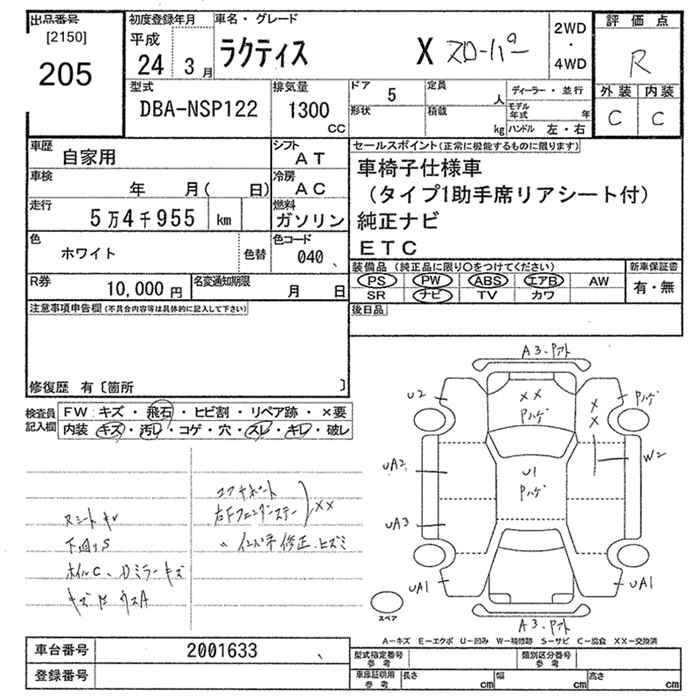 出品番号 初度登録年月 車名・グレード 評価点
[2150]
205
平成
24 3月
ラクティス X スローパー
2WD
・
4WD
R
外装 内装
C C
型式 排気量 ドア 5 定員 人 ディーラー・並行
DBA-NSP122 1300 cc
形状 積載 kg
モデル年式 年
ハンドル 左・右
車歴 自家用 シフト AT
車検 年 月( 日) 冷房 AC
走行 5万4千955 km 燃料 ガソリン
色 ホワイト 色替 色コード 040
R券 10,000円 名変通知期限 月 日
セールスポイント(正常に機能するものに限ります)
車椅子仕様車
(タイプ1助手席リアシート付)
純正ナビ
ETC
装備品(純正品に限り○をつけてください) 新車保証書
PS PW ABS エアB AW 有・無
SR ナビ TV カワ
後日品
注意事項申告欄(不具合内容等は具体的に記入して下さい)
修復歴 有〔箇所 〕
検査員記入欄
FW:キズ・飛石・ヒビ割・リペア跡・×要
内装:キズ・汚レ・コゲ・穴・スレ・キレ・破レ
コアサポート
右Fフェンダーステー XX
〃 インパネ 修正、ヒズミ
下回りS
ホイルC、Dミラーキズ
A3・Pアト
U2 XX Pハゲ Pハゲ
XX
UA2 U1 Pハゲ W2
UA3
UA1 UA1
A3・Pアト
スペア
A-キズ E-エクボ U-凹み W-補修跡 S-サビ C-腐食 XX-交換済
車台番号 2001633
登録番号
型式指定番号 参考 類別区分番号 参考
車庫証明用 参考 長さ cm 幅 cm 高さ cm